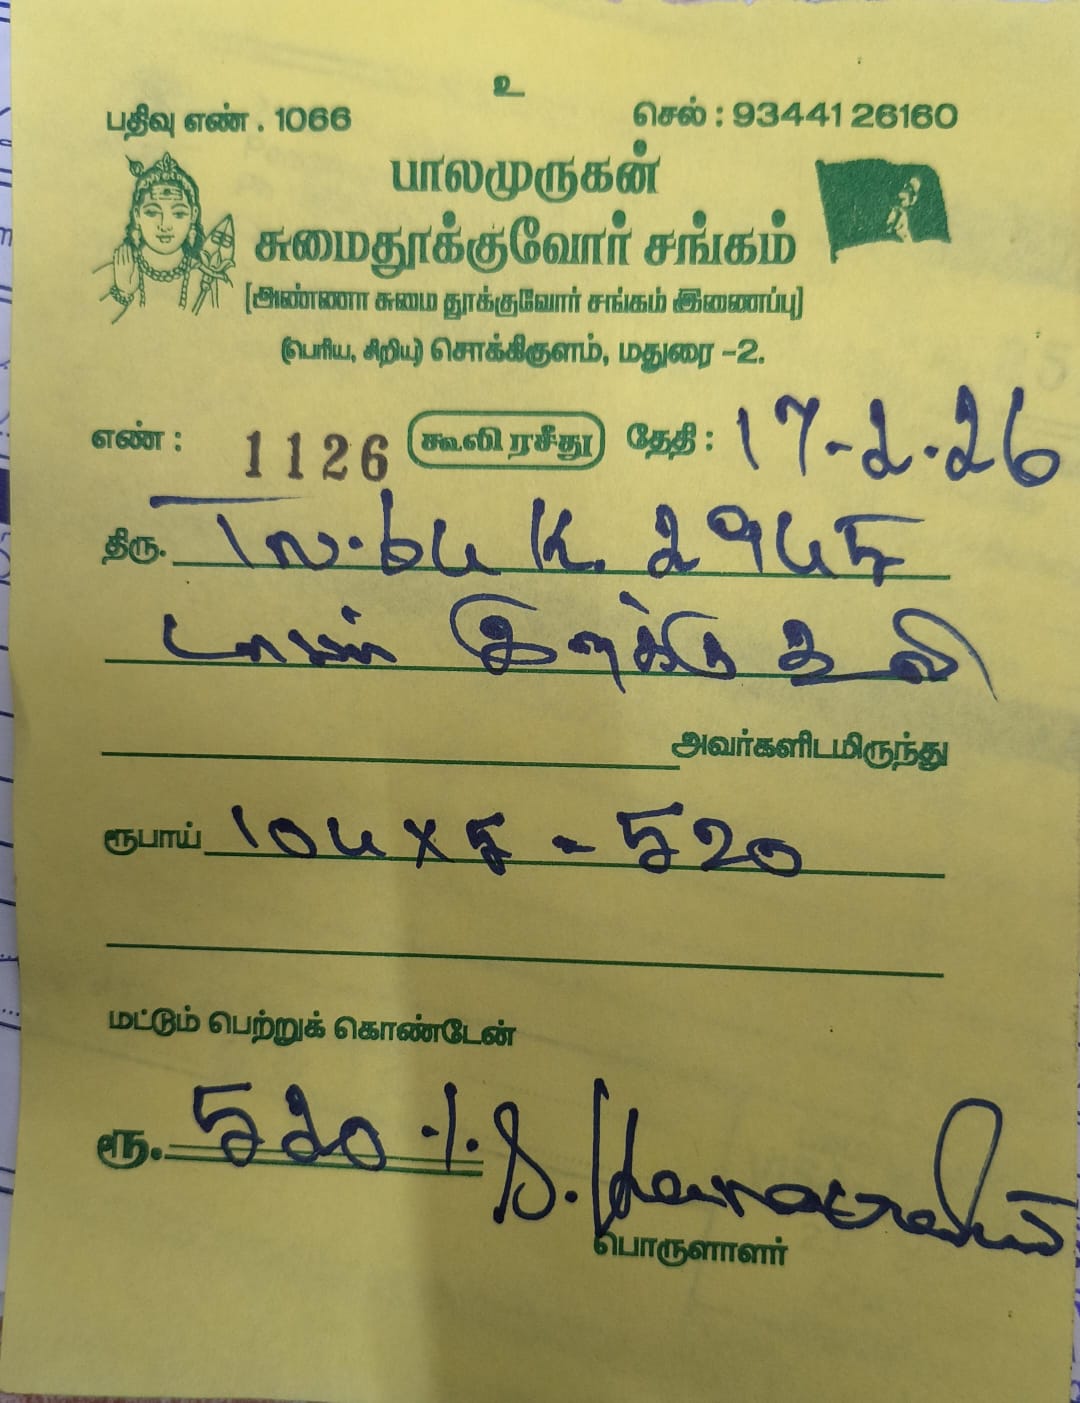 உ
பதிவு எண் . 1066
செல் : 93441 26160
பாலமுருகன்
சுமைதூக்குவோர் சங்கம்
(அண்ணா சுமை தூக்குவோர் சங்கம் இணைப்பு)
(பெரிய, சிறிய) சொக்கிகுளம், மதுரை -2.
எண் : 1126 கூலி ரசீது தேதி : 17-2-26
திரு. K. 2965
இறக்கு கூலி
அவர்களிடமிருந்து
ரூபாய் 104 x 5 - 520
மட்டும் பெற்றுக் கொண்டேன்
ரூ. 520
பொருளாளர்